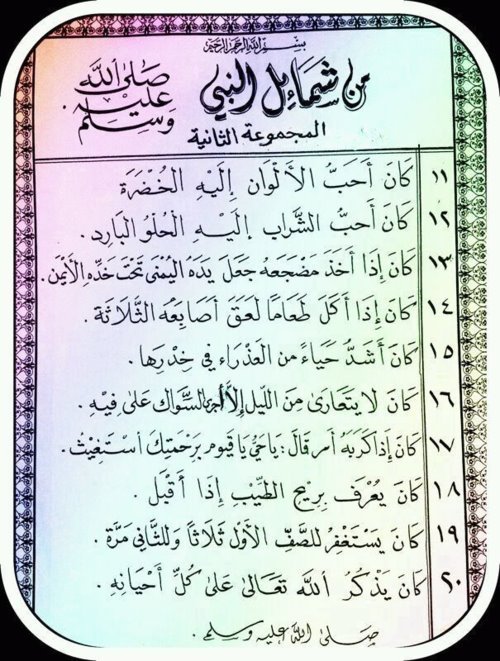 بسم الله الرحمن الرحيم
من شمائل النبي صلى الله عليه وسلم
المجموعة الثانية
١١ كَانَ أَحَبُّ الأَلْوَانِ إِلَيْهِ الخُضْرَةَ
١٢ كَانَ أَحَبُّ الشَّرَابِ إِلَيْهِ الحُلْوُ البَارِد.
١٣ كَانَ إِذَا أَخَذَ مَضْجَعَهُ جَعَلَ يَدَهُ اليُمْنَى تَحْتَ خَدِّهِ الأَيْمَنِ.
١٤ كَانَ إِذَا أَكَلَ طَعَامًا لَعَقَ أَصَابِعَهُ الثَّلَاثَةَ.
١٥ كَانَ أَشَدُّ حَيَاءً مِنَ العَذْرَاءِ فِي خِدْرِهَا.
١٦ كَانَ لا يَتَعَارَى مِنَ اللَّيْلِ إِلَّا أجرى السِّوَاكَ عَلَى فِيهِ.
١٧ كَانَ إِذَا كَرَبَهُ أَمر قَالَ: يَا حَيُّ يَا قَيُّوم بِرَحْمَتِكَ أَسْتَغِيْثُ.
١٨ كَانَ يُعْرَفُ بِرِيحِ الطِّيْبِ إِذَا أَقْبَلَ.
١٩ كَانَ يَسْتَغْفِرُ للصَّفِّ الأَوَّلِ ثَلَاثًا وَللثَّانِي مَرَّة.
٢٠ كَانَ يَذْكُرُ اللهَ تَعَالَى عَلَى كُلِّ أَحْيَانِهِ.
صلى الله عليه وسلم.